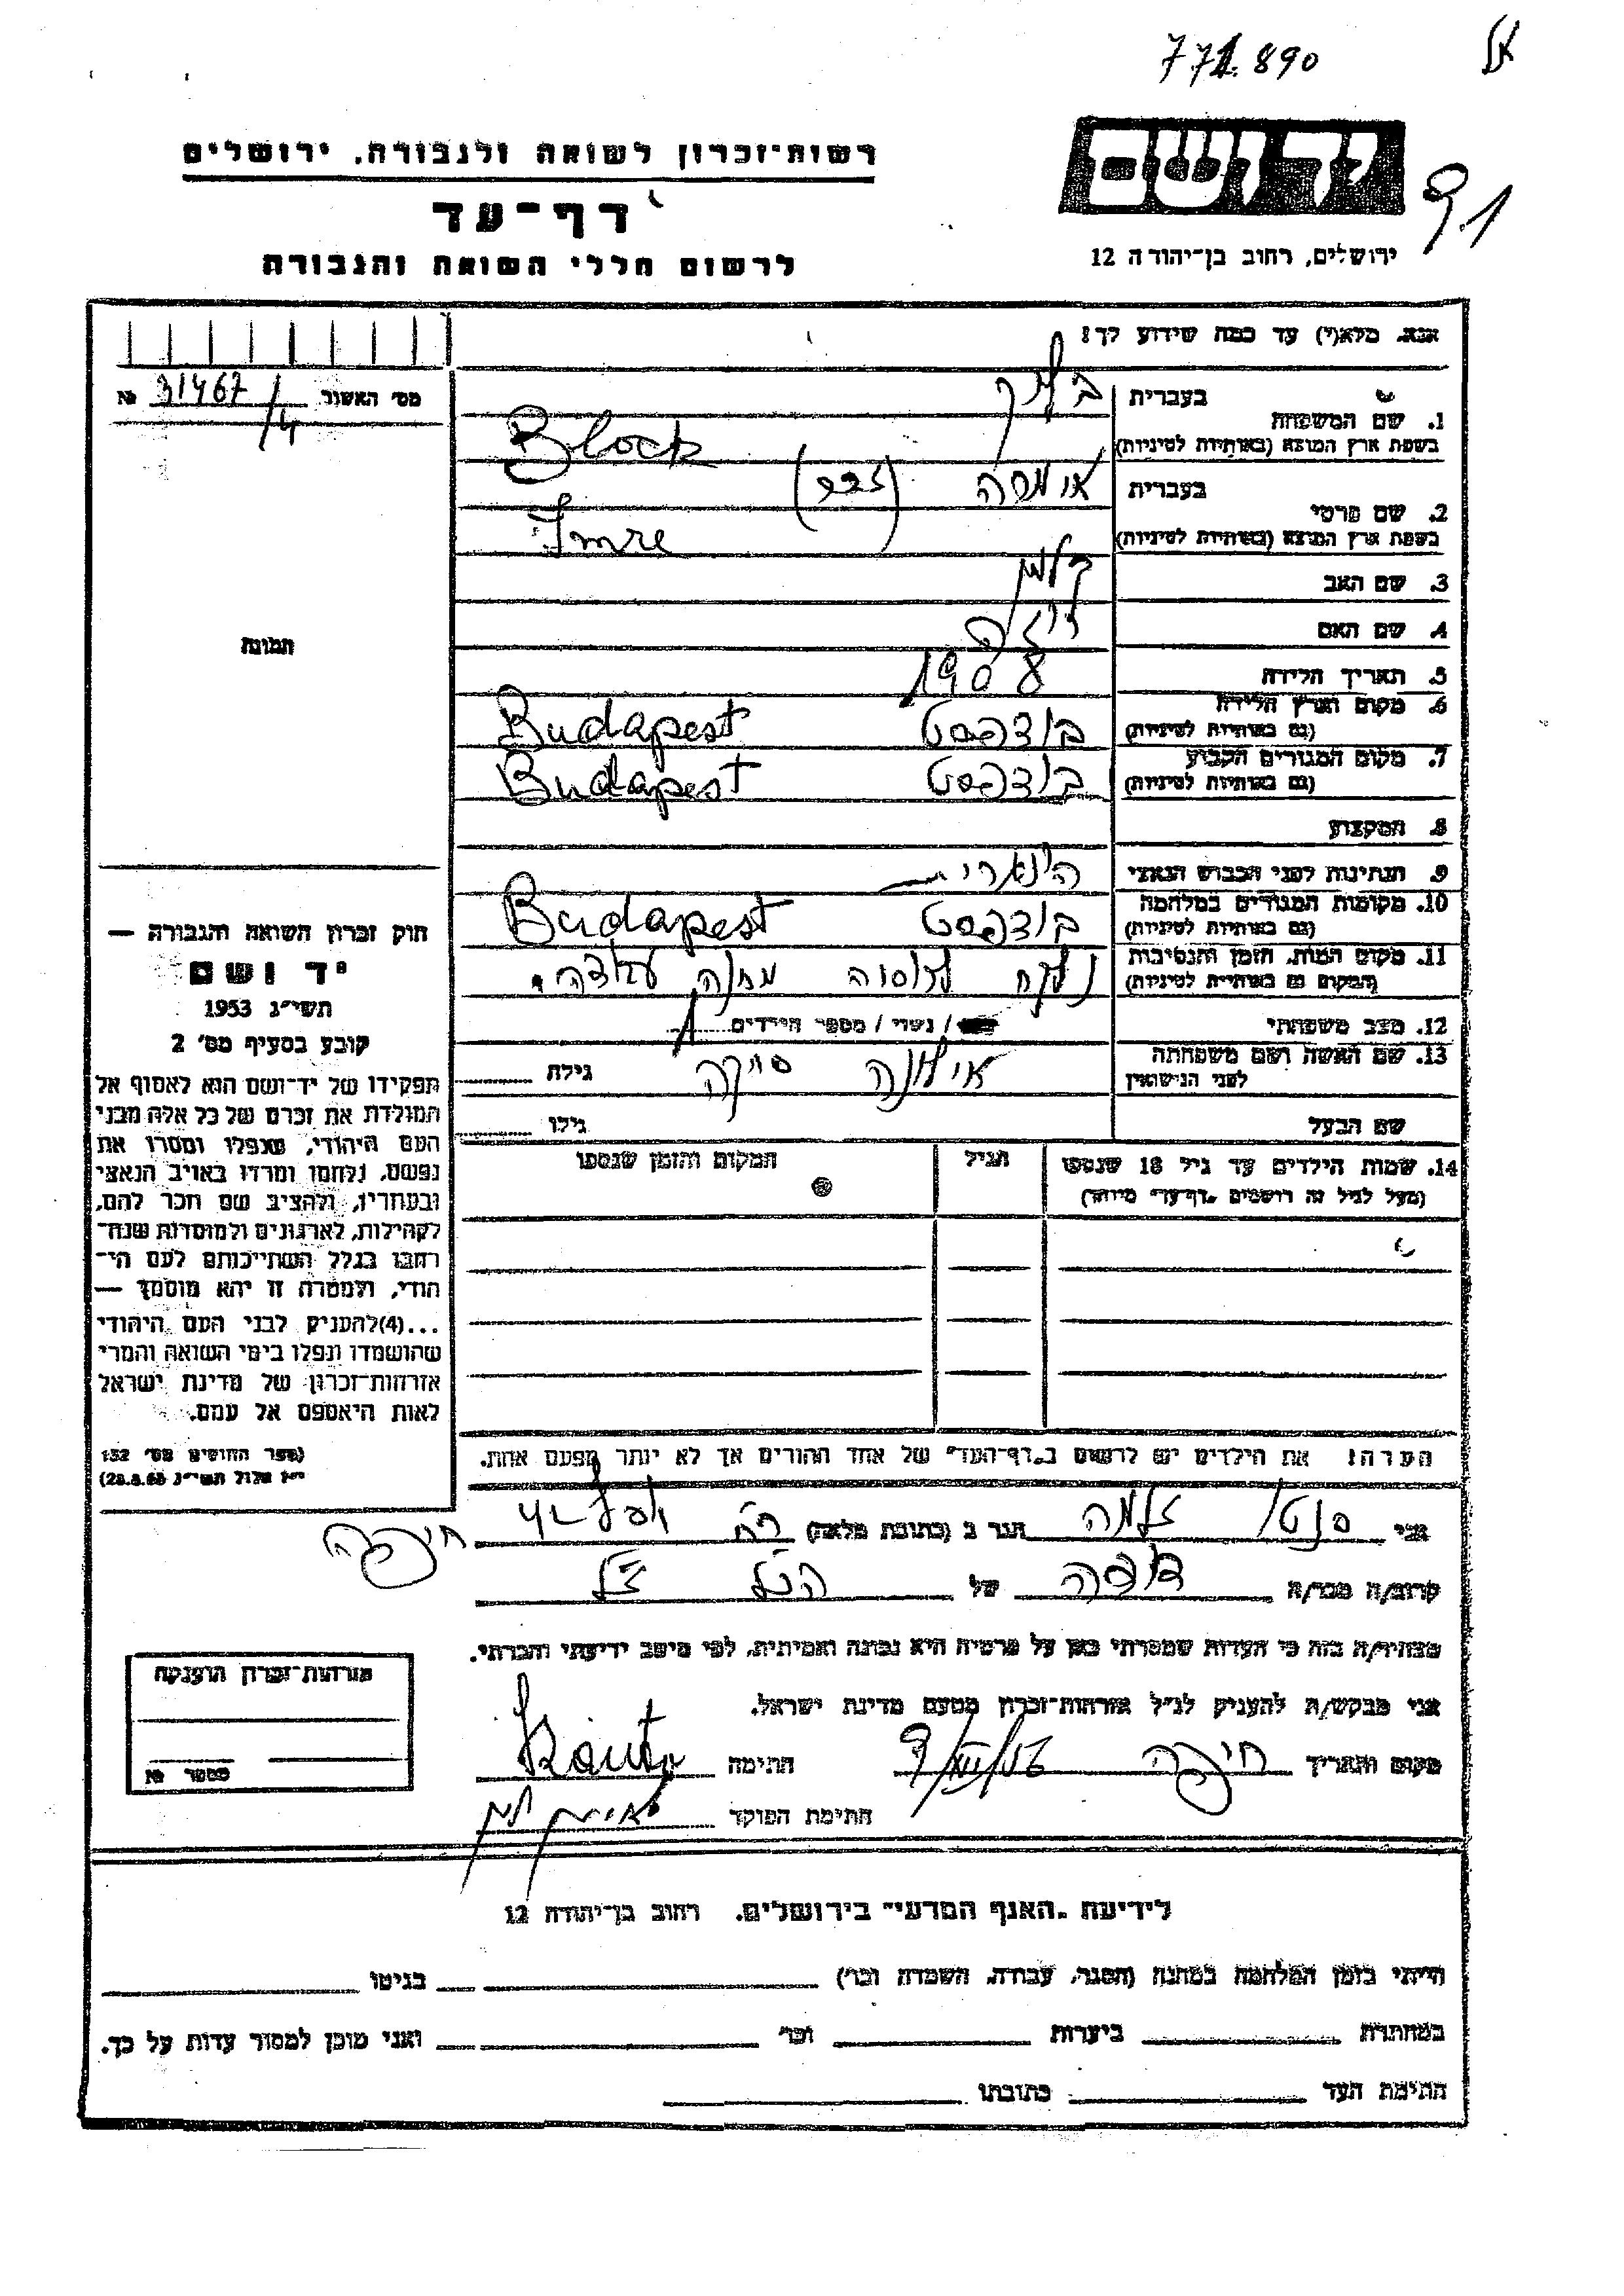 771.890
יד ושם
ירושלים, רחוב בן־יהודה 12
רשות־זכרון לשואה ולגבורה, ירושלים
דף־עד
לרשום חללי השואה והגבורה
אנא, מלא(י) עד כמה שידוע לך!
מס' האשור 31467/4 №
תמונה
1. שם המשפחה בעברית בלוק
בשפת ארץ המוצא (באותיות לטיניות) Block
2. שם פרטי בעברית אימרה (גבר)
בשפת ארץ המוצא (באותיות לטיניות) Imre
3. שם האב קלמן
4. שם האם
5. תאריך הלידה 1908
6. מקום וארץ הלידה (גם באותיות לטיניות) בודפסט Budapest
7. מקום המגורים הקבוע (גם באותיות לטיניות) בודפסט Budapest
8. המקצוע
9. הנתינות לפני הכבוש הנאצי הונגרית
10. מקומות המגורים במלחמה (גם באותיות לטיניות) בודפסט Budapest
11. מקום המות, הזמן והנסיבות (המקום גם באותיות לטיניות) נלקח לרוסיה מחנה עבודה.
12. מצב משפחתי / נשוי / מספר הילדים 1
13. שם האשה ושם משפחתה לפני הנישואין אילונה גילה
שם הבעל גילו
14. שמות הילדים עד גיל 18 שנספו הגיל המקום והזמן שנספו
(מעל לגיל זה רושמים „דף־עד" מיוחד)
הערה! את הילדים יש לרשום ב„דף־העד" של אחד ההורים אך לא יותר מפעם אחת.
חוק זכרון השואה והגבורה —
יד ושם
תשי״ג 1953
קובע בסעיף מס' 2
תפקידו של יד־ושם הוא לאסוף אל
המולדת את זכרם של כל אלה מבני
העם היהודי, שנפלו ומסרו את
נפשם, נלחמו ומרדו באויב הנאצי
ובעוזריו, ולהציב שם וזכר להם,
לקהילות, לארגונים ולמוסדות שנח־
רבו בגלל השתייכותם לעם הי־
הודי, ולמטרה זו יהא מוסמך —
...(4)להעניק לבני העם היהודי
שהושמדו ונפלו בימי השואה והמרי
אזרחות־זכרון של מדינת ישראל
לאות היאספם אל עמם.
(ספר החוקים מס' 132
י״ז אלול תשי״ג 28.8.53)
אני זלמה הגר ב (כתובת מלאה) רח' חיפה
קרוב/ה מכר/ה דודה של הנ״ל
מצהיר/ה בזה כי העדות שמסרתי כאן על פרטיה היא נכונה ואמיתית, לפי מיטב ידיעתי והכרתי.
אני מבקש/ה להעניק לנ״ל אזרחות־זכרון מטעם מדינת ישראל.
מקום ותאריך חיפה 9/VIII/56 חתימה
חתימת הפוקד
אזרחות־זכרון הוענקה
מספר №
לידיעת „האגף המדעי" בירושלים, רחוב בן־יהודה 12
הייתי בזמן המלחמה במחנה (הסגר, עבודה, השמדה וכו') בגיטו
במחתרת ביערות וכו' ואני מוכן למסור עדות על כך.
חתימת העד כתובתו